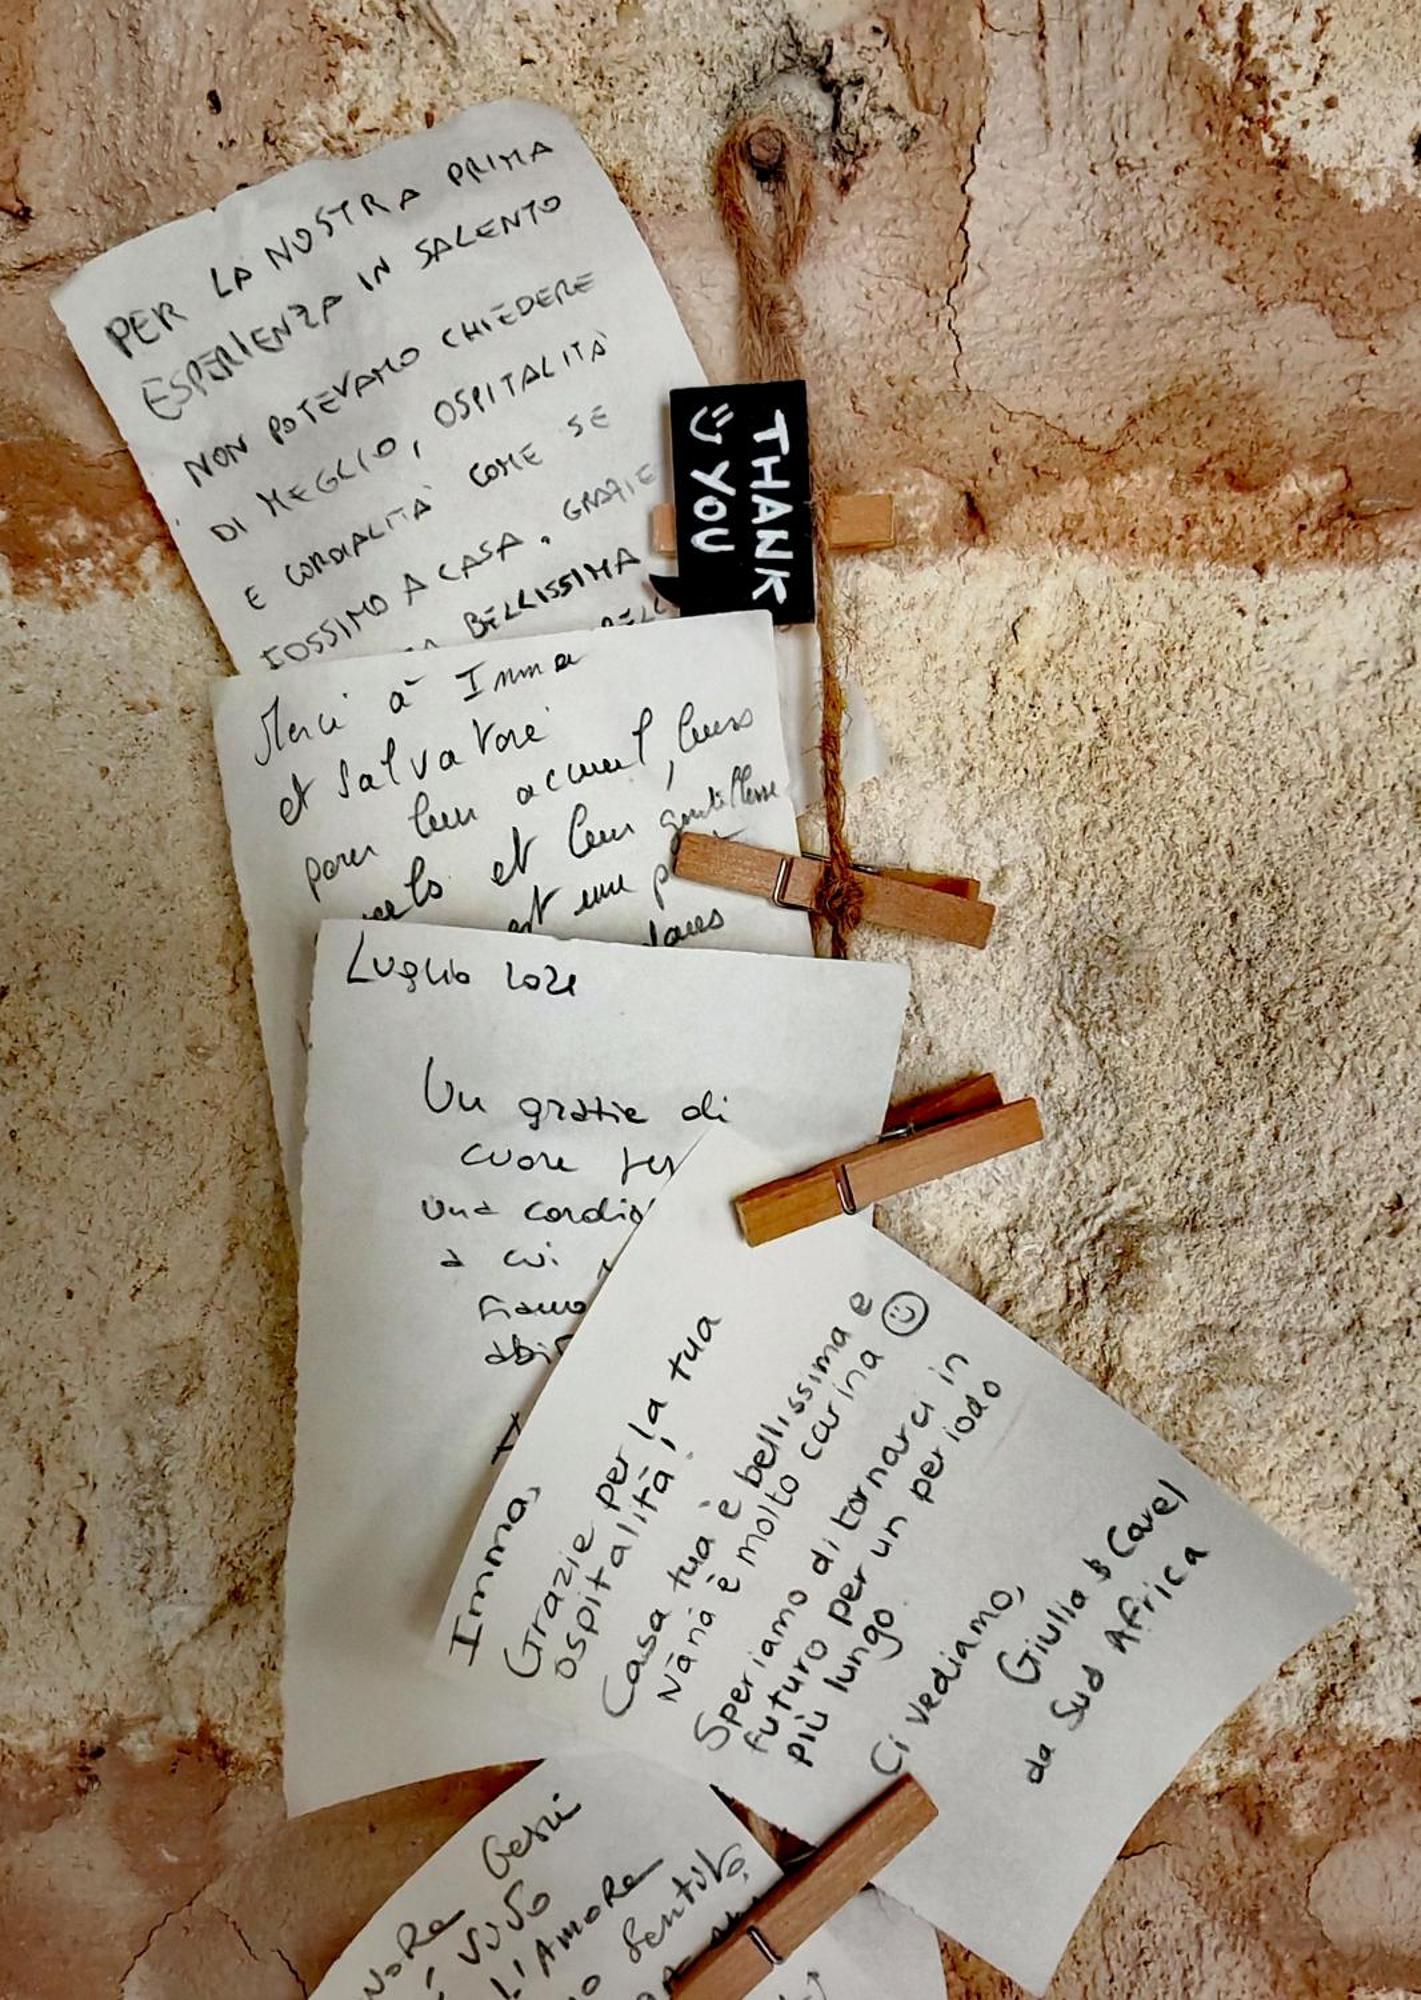 PER LA NOSTRA PRIMA
ESPERIENZA IN SALENTO
NON POTEVAMO CHIEDERE
DI MEGLIO, OSPITALITA'
E CORDIALITA' COME SE
FOSSIMO A CASA. GRAZIE
BELLISSIMA
THANK
YOU
Merci à Imma
et Salvatore
pour leur acceuil, leurs
et leur gentillesse
est une
dans
Luglio 2021
Un grazie di
cuore per
una
a cui
siamo
Imma,
Grazie per la tua
ospitalità!
Casa tua è bellissima e
Nanà è molto carina
Speriamo di tornarci in
futuro per un periodo
più lungo.
Ci vediamo,
Giulia & Cavel
da Sud Africa
Gesù
L'AMORE